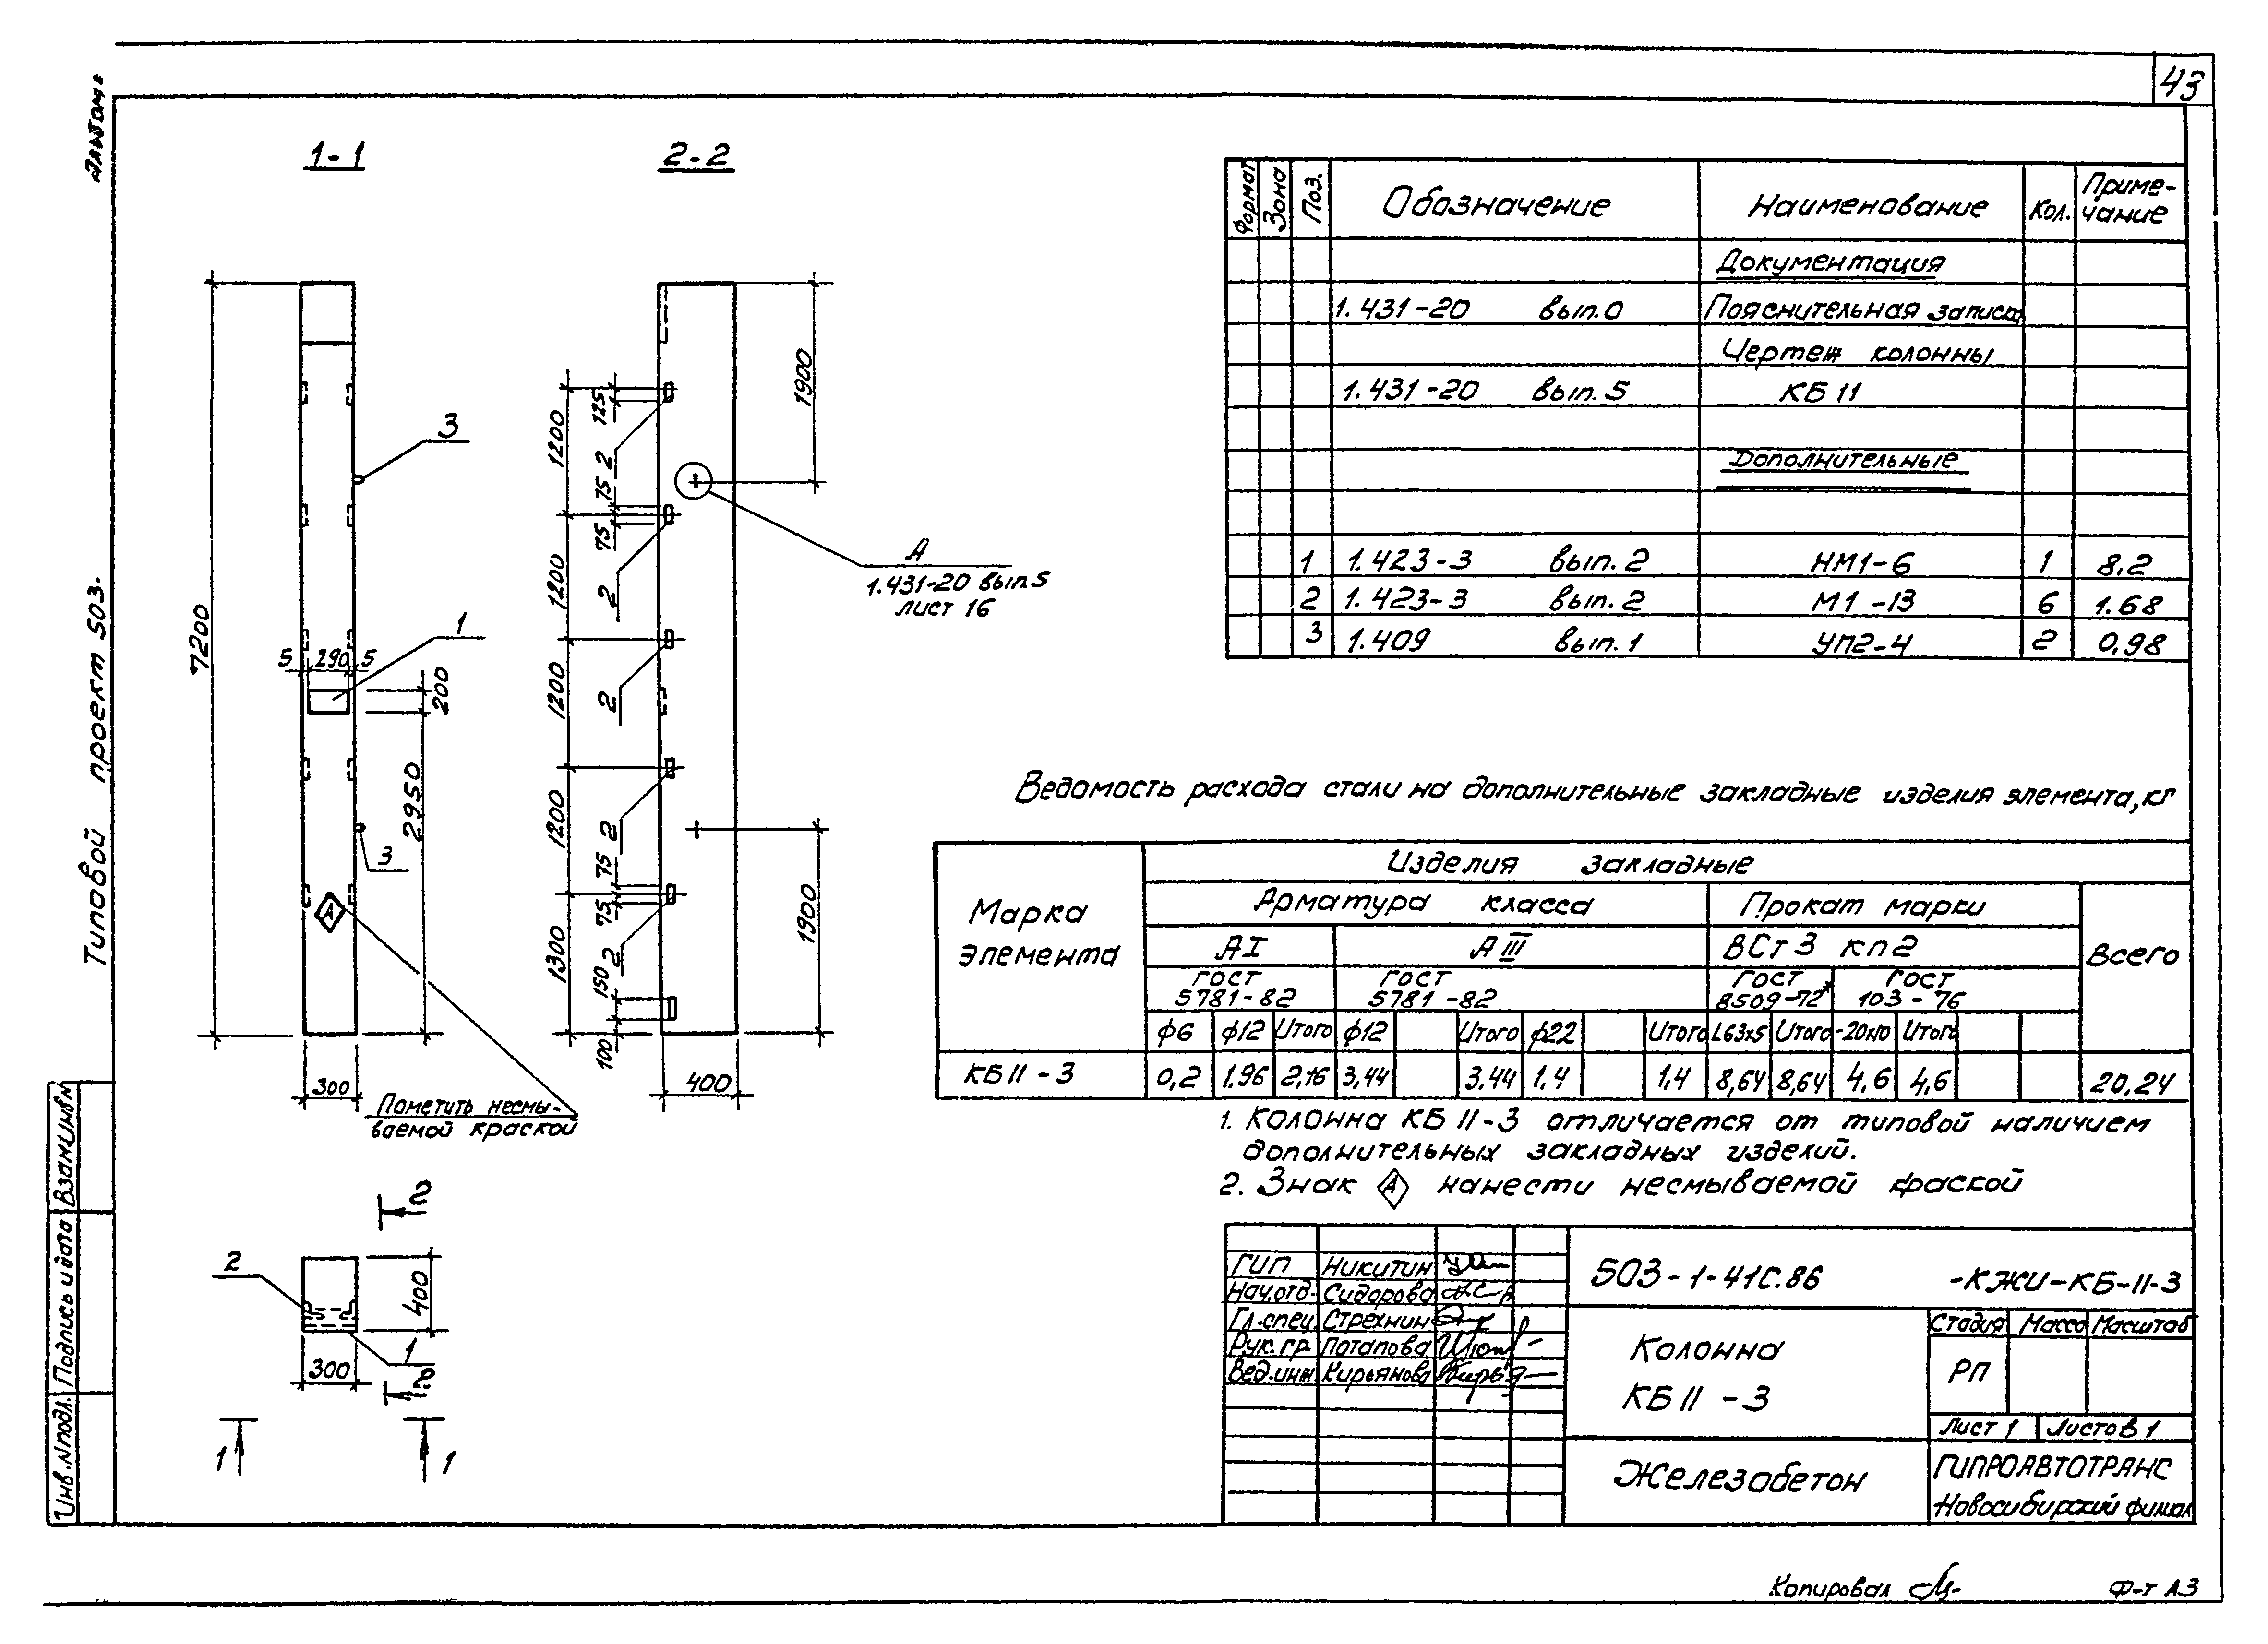 43
Альбом
Типовой проект 503.
1-1
2-2
7200
3
1
5 290 5
200
2950
3
A
300
Пометить несмы-
ваемой краской
1200
125
2
75
75
1200
2
1200
2
1200
2
75
75
1300
2
150
100
1900
A
1.431-20 вып.5
лист 16
1900
400
2
2
400
1
300
2
1
1
Формат Зона Поз. Обозначение Наименование Кол. Приме-
чание
Документация
1.431-20 вып.0 Пояснительная записка
Чертеж колонны
1.431-20 вып.5 КБ 11
Дополнительные
1 1.423-3 вып.2 НМ1-6 1 8,2
2 1.423-3 вып.2 М1-13 6 1.68
3 1.409 вып.1 УП2-4 2 0,98
Ведомость расхода стали на дополнительные закладные изделия элемента, кг
Марка
элемента
Изделия закладные
Арматура класса Прокат марки
Всего
А I А III ВСт 3 кп 2
ГОСТ
5781-82
ГОСТ
5781-82
ГОСТ
8509-72*
ГОСТ
103-76
ф6 ф12 Итого ф12 Итого ф22 Итого L63x5 Итого -20x10 Итого
КБ 11-3 0,2 1.96 2,16 3,44 3,44 1,4 1,4 8,64 8,64 4,6 4,6 20,24
1. Колонна КБ 11-3 отличается от типовой наличием
дополнительных закладных изделий.
2. Знак A нанести несмываемой краской
ГИП Никитин
Нач.отд. Сидорова
Гл.спец Стрехнин
Рук.гр. Потапова
Вед.инж Кирьянова
503-1-41С.86 -КЖИ-КБ-11-3
Колонна
КБ 11-3
Стадия Масса Масштаб
РП
Лист 1 Листов 1
Железобетон
ГИПРОАВТОТРАНС
Новосибирский филиал
Инв.N подл. Подпись и дата Взам.инв.N
Копировал
Ф-т А3